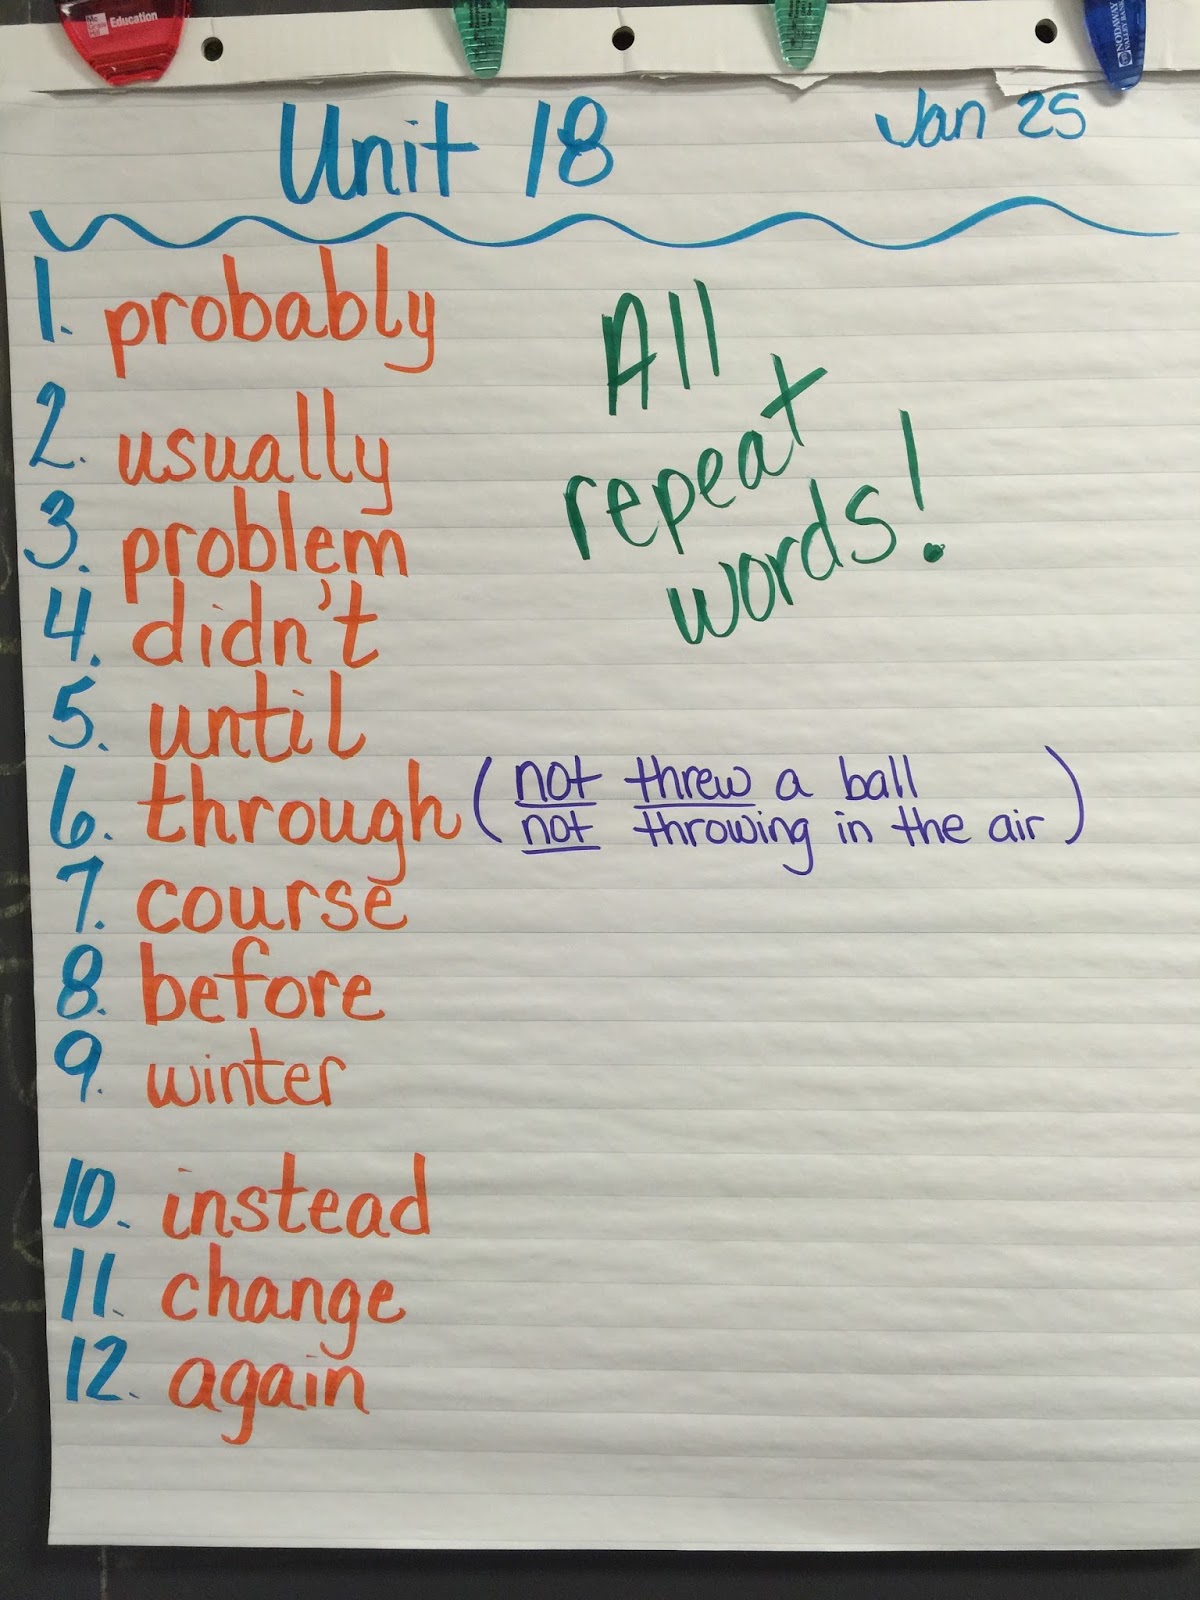 Mc Graw Hill Education
NODAWAY VALLEY BANK
Unit 18
Jan 25
1. probably
2. usually
3. problem
4. didn't
5. until
6. through (not threw a ball
not throwing in the air)
7. course
8. before
9. winter
10. instead
11. change
12. again
All
repeat
words!